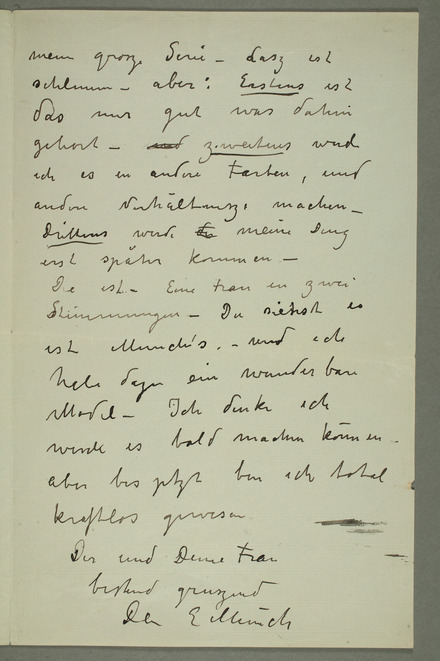 mein grosze Serie – dasz ist
schlimm – aber: Erstens ist
das nur gut was dahin
gehört – und zweitens werd
ich es in andere Farben, und
andere Verhältnisze machen –
Drittens werde meine Ding
erst später kommen –
De ist – Eine Frau in zwei
Stimmungen – Du siehst es
ist Munch's. – und ich
habe dazu ein wunderbare
Model – Ich denke ich
werde es bald machen können –
aber bis jetzt bin ich total
kraftlos gewesen
Dir und Deine Frau
bestend grüszend
Dein E Munch